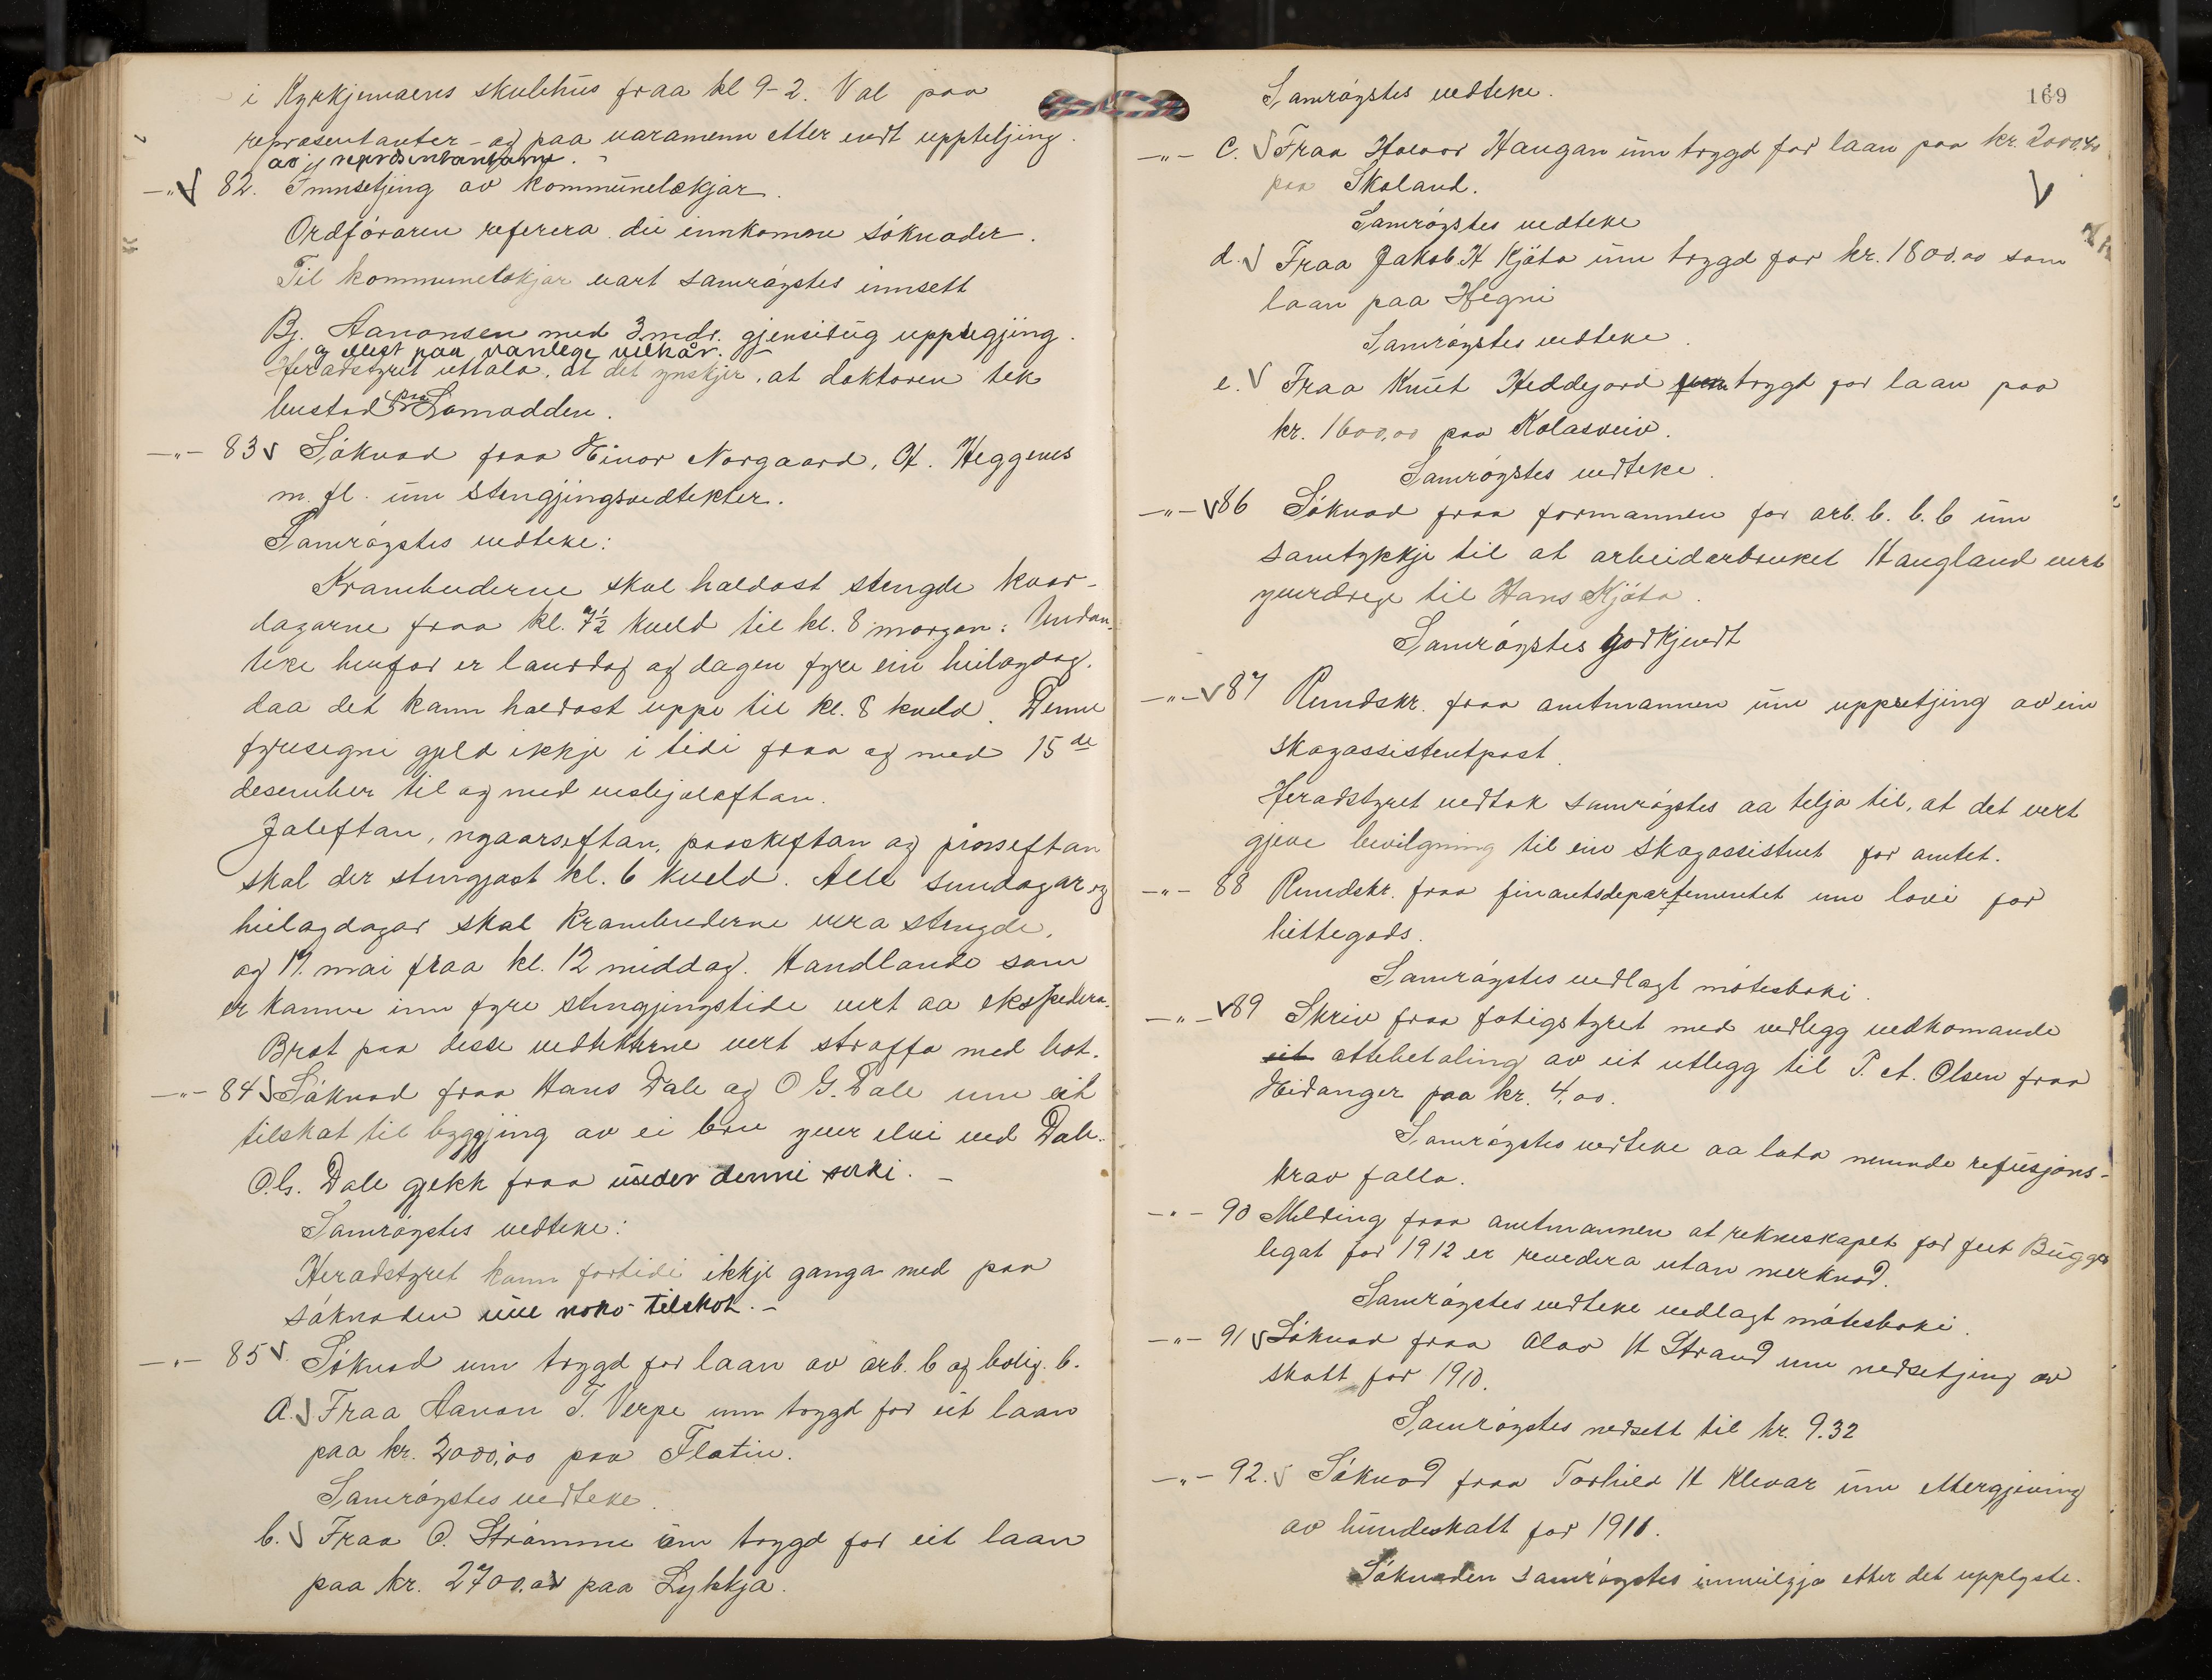 i Kyrkjemoens skulehus fraa kl 9-2. Val paa
representanter - og paa varamenn etter endt uppteljing
av representantarne.
-"- 82. Innsetjing av kommunelækjar.
Ordføraren referera dei innkomne søknader.
Til kommunelækjar vart samrøystes innsett
Bj. Aanonsen med 3 mdr. gjensidug uppsegjing.
og elles paa vanlege vilkår.
Heradstyret uttala, at det ynskjer, at doktoren tek
bustad paa Lomodden.
-"- 83 Søknad fraa Einar Norgaard, H. Heggenes
m. fl. um stengjingsvedtekter.
Samrøystes vedteke:
Krambuderne skal haldast stengde kvar-
dagarne fraa kl. 7½ kveld til kl. 8 morgon: Undan-
teke herfor er laurdag og dagen fyre ein heilagdag.
daa det kann haldast uppe til kl. 8 kveld. Denne
fyresegni gjeld ikkje i tidi fraa og med 15 de
desember til og med veslejolaftan.
Joleftan, nyaarseftan, paaskeftan og pinseftan
skal der stengjast kl. 6 kveld. Alle sundagar og
heilagdagar skal krambuderne vera stengde,
og 17. mai fraa kl. 12 middag. Handlande som
er komne inn fyre stengjingstide vert aa ekspedera.
Brot paa desse vedtekterne vert straffa med bot.
-"- 84 Søknad fraa Hans Dale og O G. Dale um eit
tilskot til byggjing av ei bru yver elvi ved Dale.
O.G. Dale gjekk fraa under denni saki. -
Samrøystes vedteke:
Heradstyret kann fortidi ikkje ganga med paa
søknaden um noko tilskot. -
-"- 85. Søknad um trygd for laan av arb. b og bolig. b.
a. Fraa Aanon T. Verpe um trygd for eit laan
paa kr. 2000,00 paa Flatin.
Samrøystes vedteke.
b. Fraa O. Strømme um trygd for eit laan
paa kr. 2700,00 paa Lykkja.
169
Samrøystes vedteke.
-"- c. Fraa Halvor Haugan um trygd for laan paa kr. 2000,00
paa Skoland.
Samrøystes vedteke
d. Fraa Jakob H Kjøta um trygd for kr. 1800.00 som
laan paa Hegni
Samrøystes vedteke.
e. Fraa Knut Heddejord um trygd for laan paa
kr. 1600,00 paa Kolasvein.
Samrøystes vedteke.
-"- 86 Søknad fraa formannen for arb. b. b. b um
samtykkje til at arbeidarbruket Haugland vert
yverdrege til Hans Kjøta.
Samrøystes godkjendt
-"- 87 Rundskr. fraa amtmannen um uppretjing av ein
skogassistentpost.
Heradstyret vedtok samrøystes aa telja til, at det vert
gjeve bevilgning til ein skogassistent for amtet.
-"- 88 Rundskr. fraa finantsdepartementet um lovi for
hittegods.
Samrøystes vedlagt møtesboki.
-"- 89 Skriv fraa fatigstyret med vedlegg vedkomande
eit attebetaling av eit utlegg til P. A. Olsen fraa
Eidanger paa kr. 4,00.
Samrøystes vedteke aa lata nemnde refusjons-
krav falla.
-"- 90 Melding fraa amtmannen at rekneskapet for fut Bugges
legat for 1912 er revedera utan merknad.
Samrøystes vedteke vedlagt møtesboki.
-"- 91 Søknad fraa Olav H Strand um nedsetjing av
skatt for 1910.
Samrøystes nedsett til kr. 9.32
-"- 92. Søknad fraa Torhild H Klevar um ettergjeving
av hundeskatt for 1911.
Søknaden samrøystes innvilgja etter det upplyste.